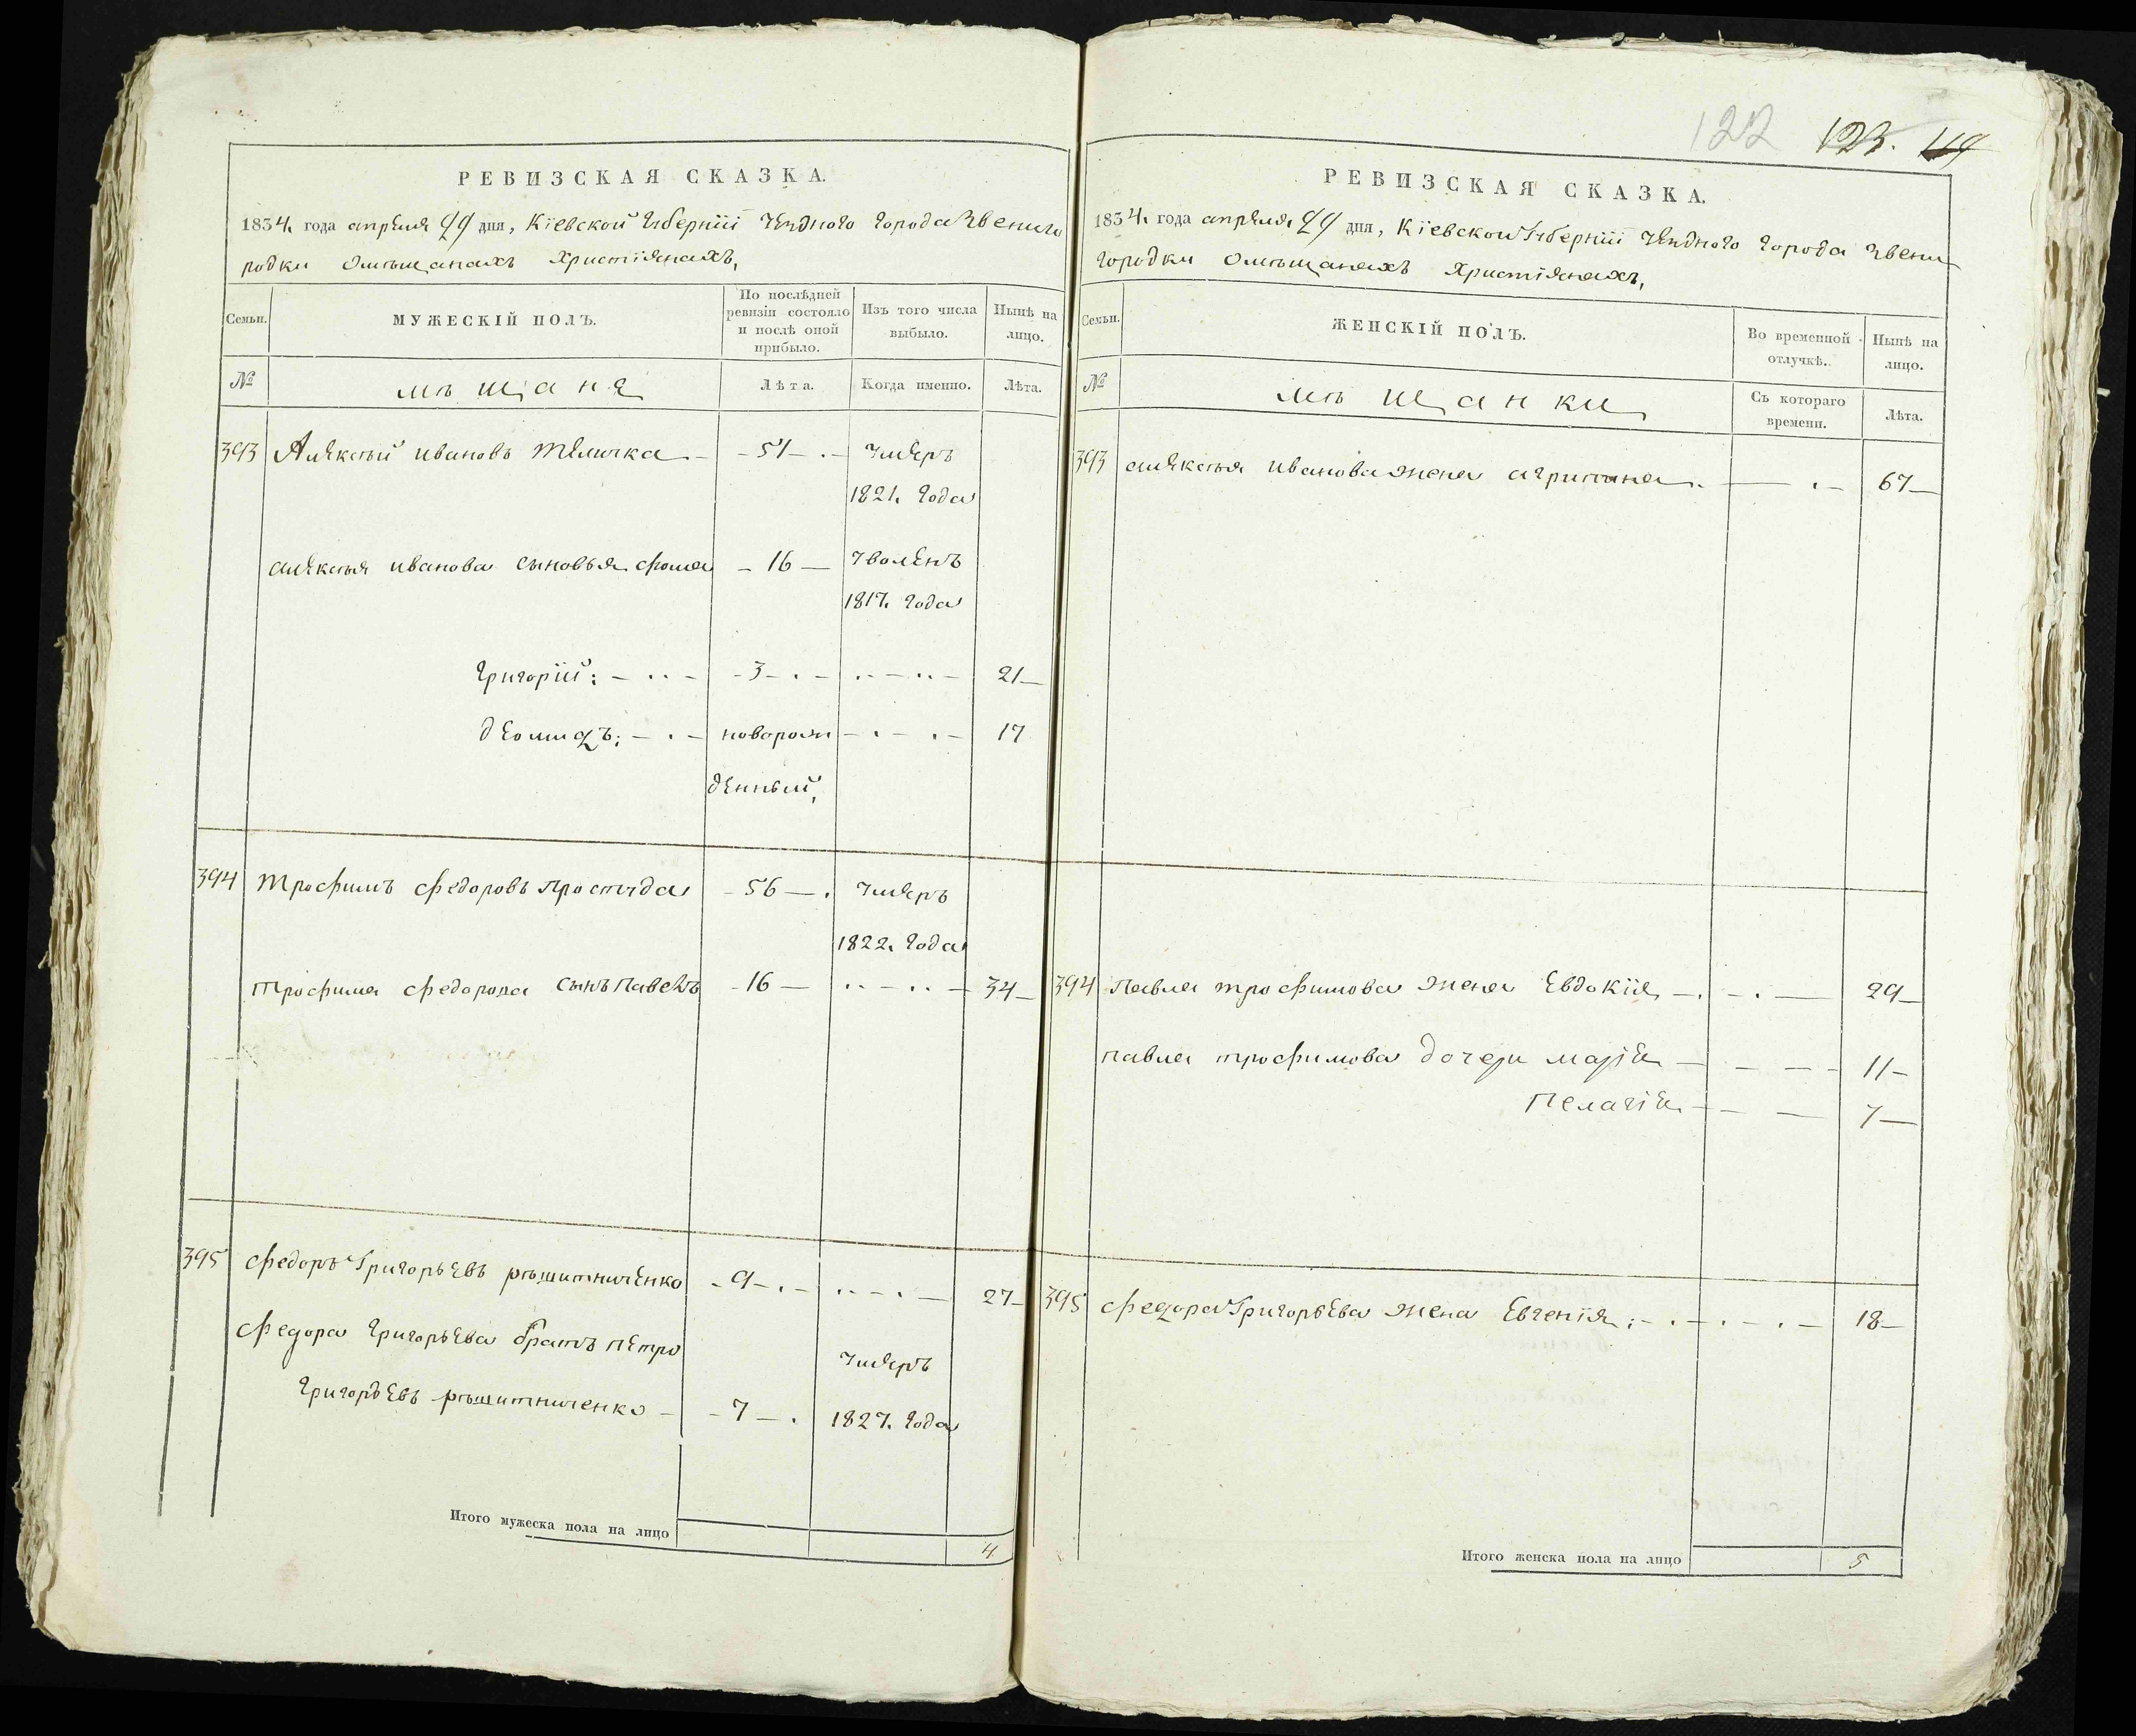 122 123. 119
РЕВИЗСКАЯ СКАЗКА.
1834. года апреля 29 дня, Кіевской Губерніи уезднаго города Звениго
родки омѣщанахъ христіянахъ,
Семьи.
МУЖЕСКІЙ ПОЛЪ.
По послѣдней ревизіи состояло и послѣ оной прибыло.
Изъ того числа выбыло.
Нынѣ на лицо.
№
мѣщаня
Лѣта.
Когда именно.
Лѣта.
393 Алексѣй ивановъ теличка - 51 - умеръ
1821. года
алексѣя иванова сыновья фома - 16 - уволенъ
1817. года
григорій: - 3 - 21
деомидъ: - новорож - 17
денный,
394 трофимъ федоровъ простуда - 56 - умеръ
1822. года
трофима федорова сынъ павелъ - 16 - 34
395 федоръ григорьевъ рѣшитниченко - 9 - 27
федора григорьева братъ петро
умеръ
григорьевъ рѣшитниченко - 7 - 1827. года
Итого мужеска пола на лицо 4
РЕВИЗСКАЯ СКАЗКА.
1834. года апреля 29 дня, Кіевской Губерніи уезднаго города Звени
городки омѣщанахъ христіянахъ,
Семьи.
ЖЕНСКІЙ ПОЛЪ.
Во временной отлучкѣ.
Нынѣ на лицо.
№
мѣщанки
Съ котораго времени.
Лѣта.
393 алексѣя иванова жена агрипина - 67
394 павла трофимова жена Евдокія - 29
павла трофимова дочери марія - 11
Пелагія - 7
395 федора григорьева жена Евгенія - 18
Итого женска пола на лицо 5